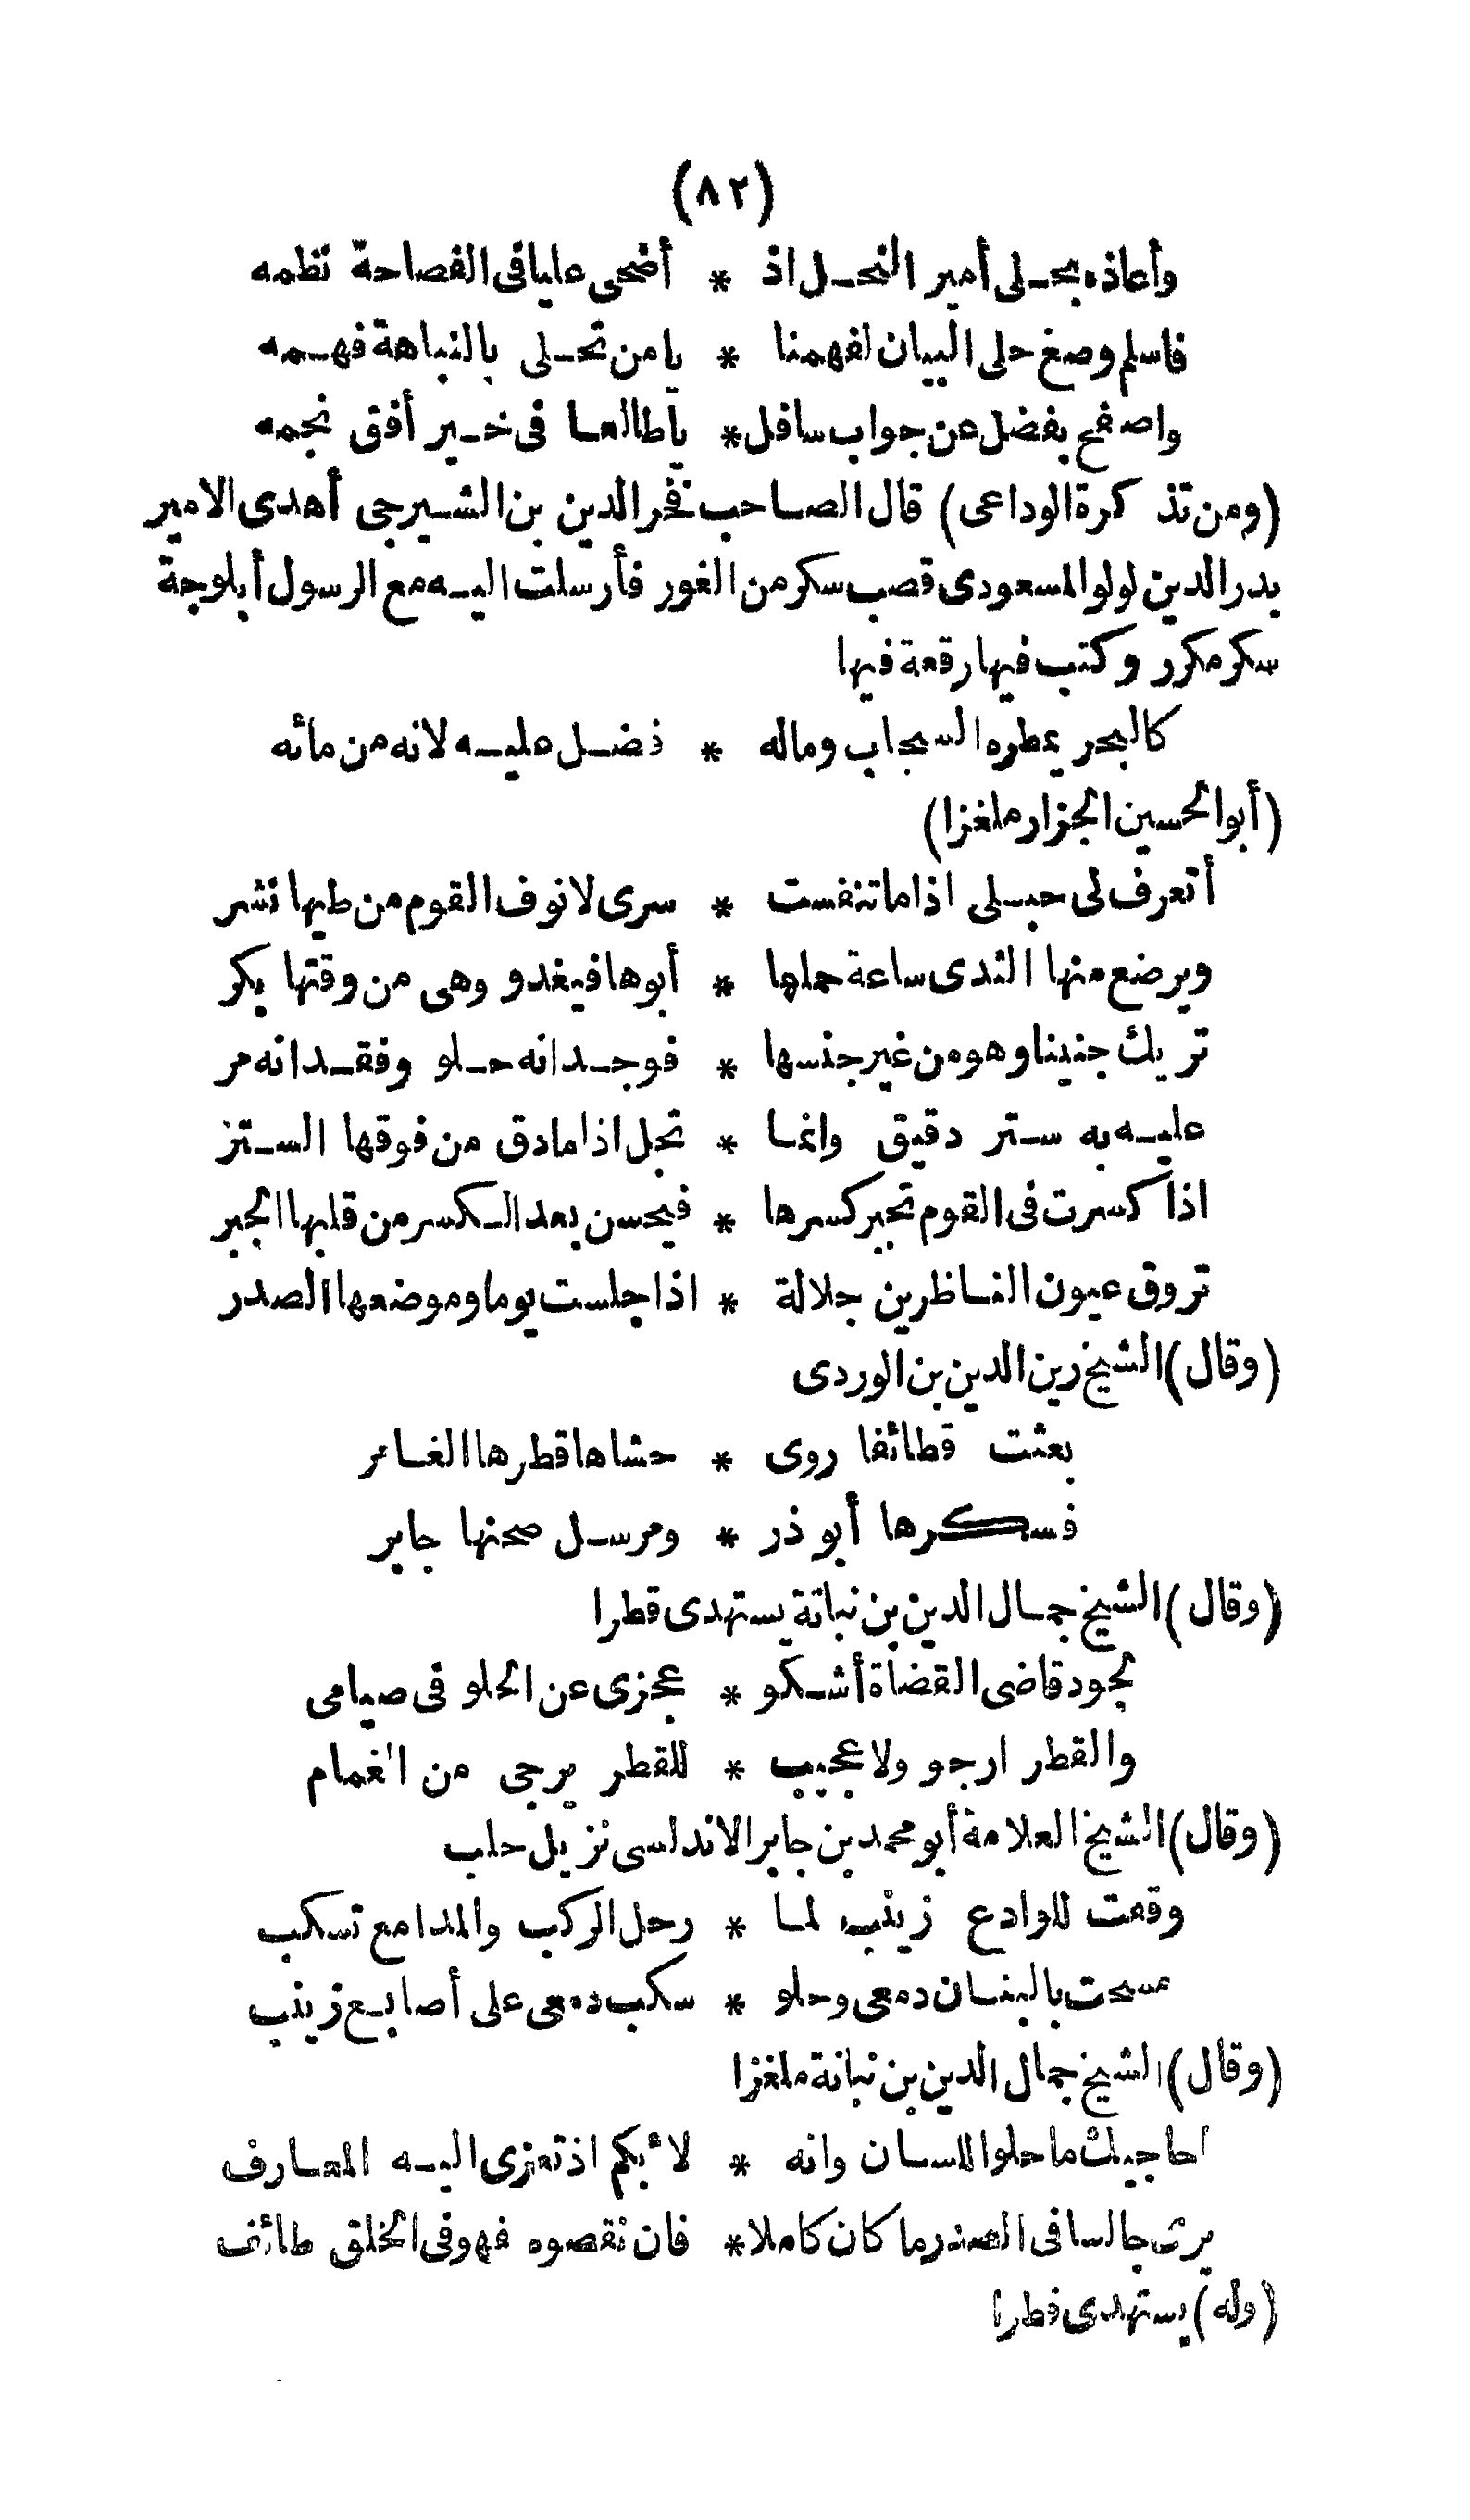 (٨٢)
وأعاذه بحلى أمير النحل اذ * أضحى عليا فى الفصاحة نظمه
فاسلم وصغ حلى البيان لفهمنا * يا من تحلى بالنباهة فهمه
واصفح بفضل عن جواب سافل * ياطالعا فى خير أفق نجمه
(ومن تذكرة الوداعى) قال الصاحب فخر الدين بن الشيرجى أهدى الامير
بدر الدين لولو المسعودى قصب سكر من الغور فأرسلت اليه مع الرسول أبلوجة
سكر مكرر وكتب فيها رقعة فيها
كالبحر يمطره السحاب وماله * فضل عليه لانه من مائه
(أبو الحسين الجزار ملغزا)
أتعرف لى حبلى اذا ما تنفست * سرى لانوف القوم من طيها نشر
ويرضع منها الثدى ساعة حملها * أبوها فيغدو وهى من وقتها بكر
تريك جنينا وهو من غير جنسها * فوجدانه حلو وفقدانه مر
عليه به ستر دقيق وانما * تجل اذا ما دق من فوقها الستر
اذا كسرت فى القوم تجبر كسرها * فيحسن بعد الكسر من قلبها الجبر
تروق عيون الناظرين جلالة * اذا جلست يوما وموضعها الصدر
(وقال) الشيخ زين الدين بن الوردى
بعثت قطائفا روى * حشاها قطرها الغامر
فسكرها أبو ذر * ومرسل صحنها جابر
(وقال) الشيخ جمال الدين بن نباتة يستهدى قطرا
لجود قاضى القضاة أشكو * عجزى عن الحلو فى صيامى
والقطر ارجو ولا عجيب * للقطر يرجى من الغمام
(وقال) الشيخ العلامة أبو محمد بن جابر الاندلسى نزيل حلب
وقفت للوادع زينب لما * رحل الركب والمدامع تسكب
مسحت بالبنان دمعى وحلو * سكب دمعى على أصابع زينب
(وقال) الشيخ جمال الدين بن نباتة ملغزا
احاجيك ما حلو اللسان وانه * لأبكم اذ تعزى اليه المعارف
يرى جالسا فى الصدر ما كان كاملا * فان نقصوه فهو فى الخلق طائف
(وله) يستهدى قطرا